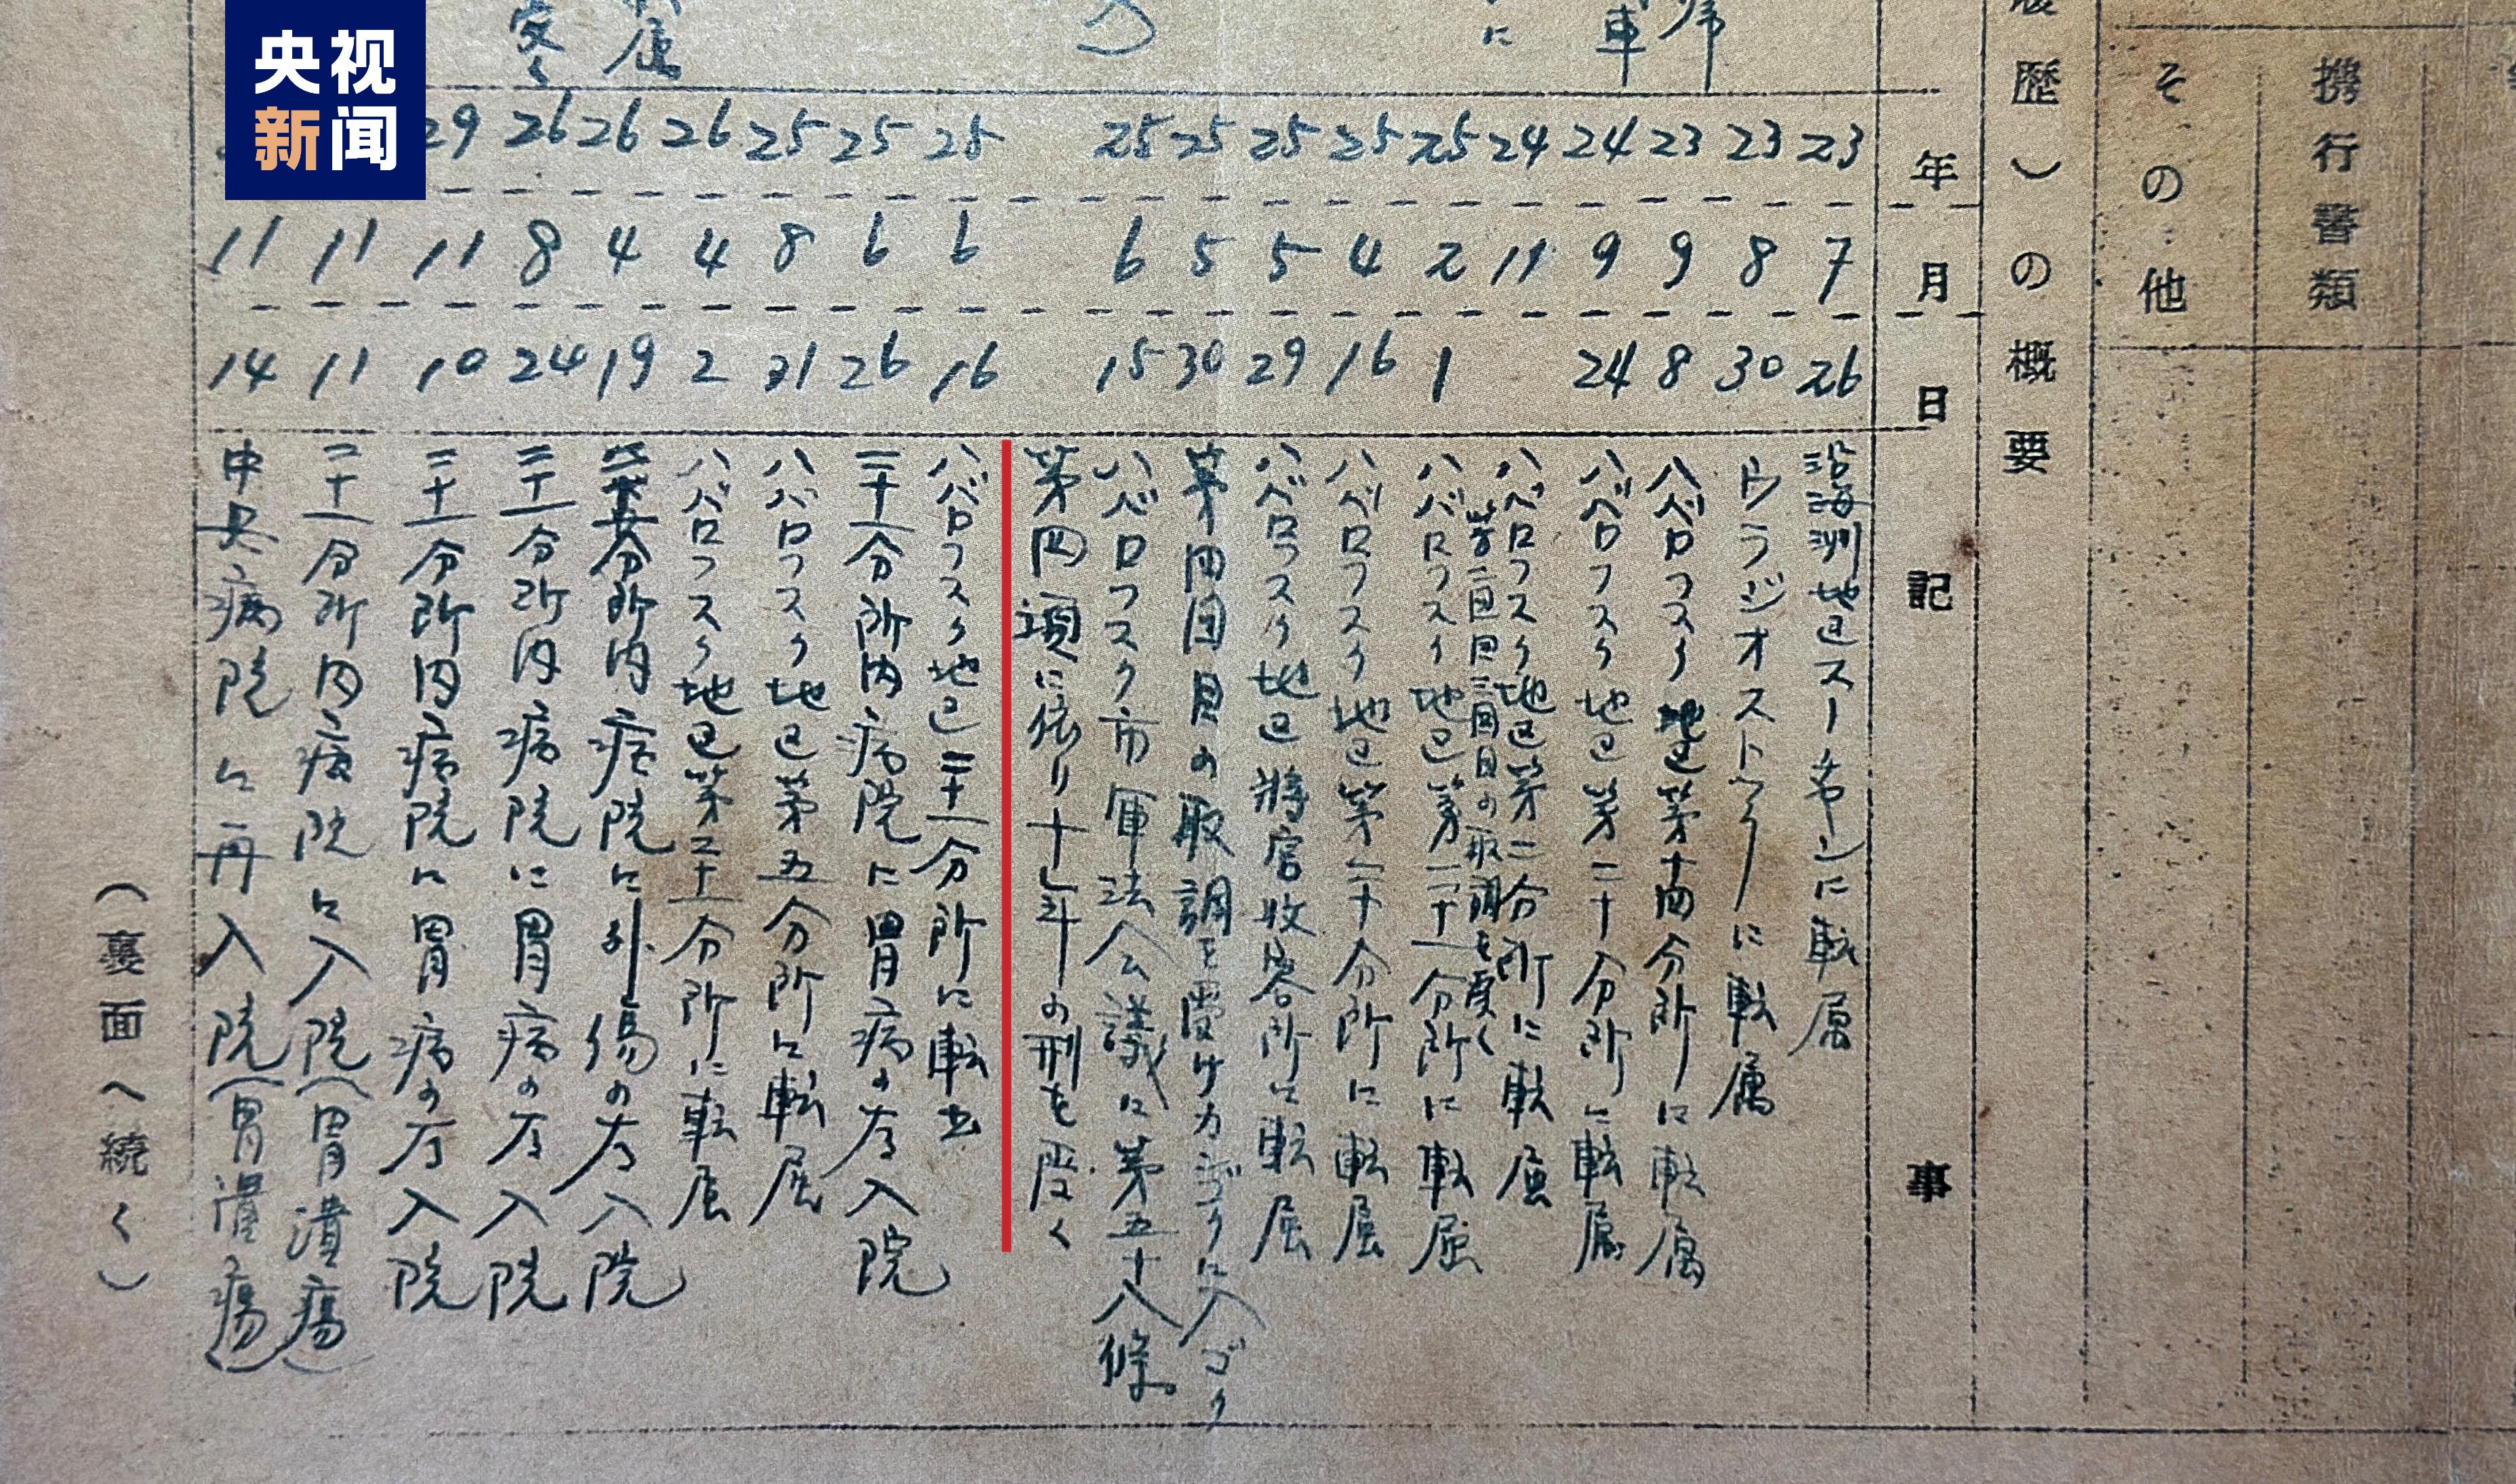 央视
新闻
携行書類
その他
歴)の概要
年 月 日 記事
23 7 26 沿海州地区スーチヤンに転属
23 8 30 ウラジオストックに転属
23 9 8 ハバロフスク地区第十四分所に転属
24 9 24 ハバロフスク地区第二十分所に転属
24 11 ハバロフスク地区第二分所に転属
第二回三回目の取調を受く
25 2 1 ハバロフスク地区第二十一分所に転属
25 4 16 ハバロフスク地区第二十分所に転属
25 5 29 ハバロフスク地区将官收容所に転属
25 5 30 第四回目の取調を受けカンゴクに入ゴク
25 6 15 ハバロフスク市軍法会議に第五十八條
第四項に依り十年の刑を受く
25 6 16 ハバロフスク地区二十一分所に転出
25 6 26 二十一分所内病院に胃病の為入院
25 8 31 ハバロフスク地区第五分所に転属
26 4 2 ハバロフスク地区第二十一分所に転属
26 4 19 分所内病院に外傷の為入院
26 8 24 二十一分所内病院に胃病の為入院
29 11 10 二十一分所内病院に胃病の為入院
11 11 二十一分所内病院に入院(胃潰瘍)
11 14 中央病院に再入院(胃潰瘍)
(裏面へ続く)